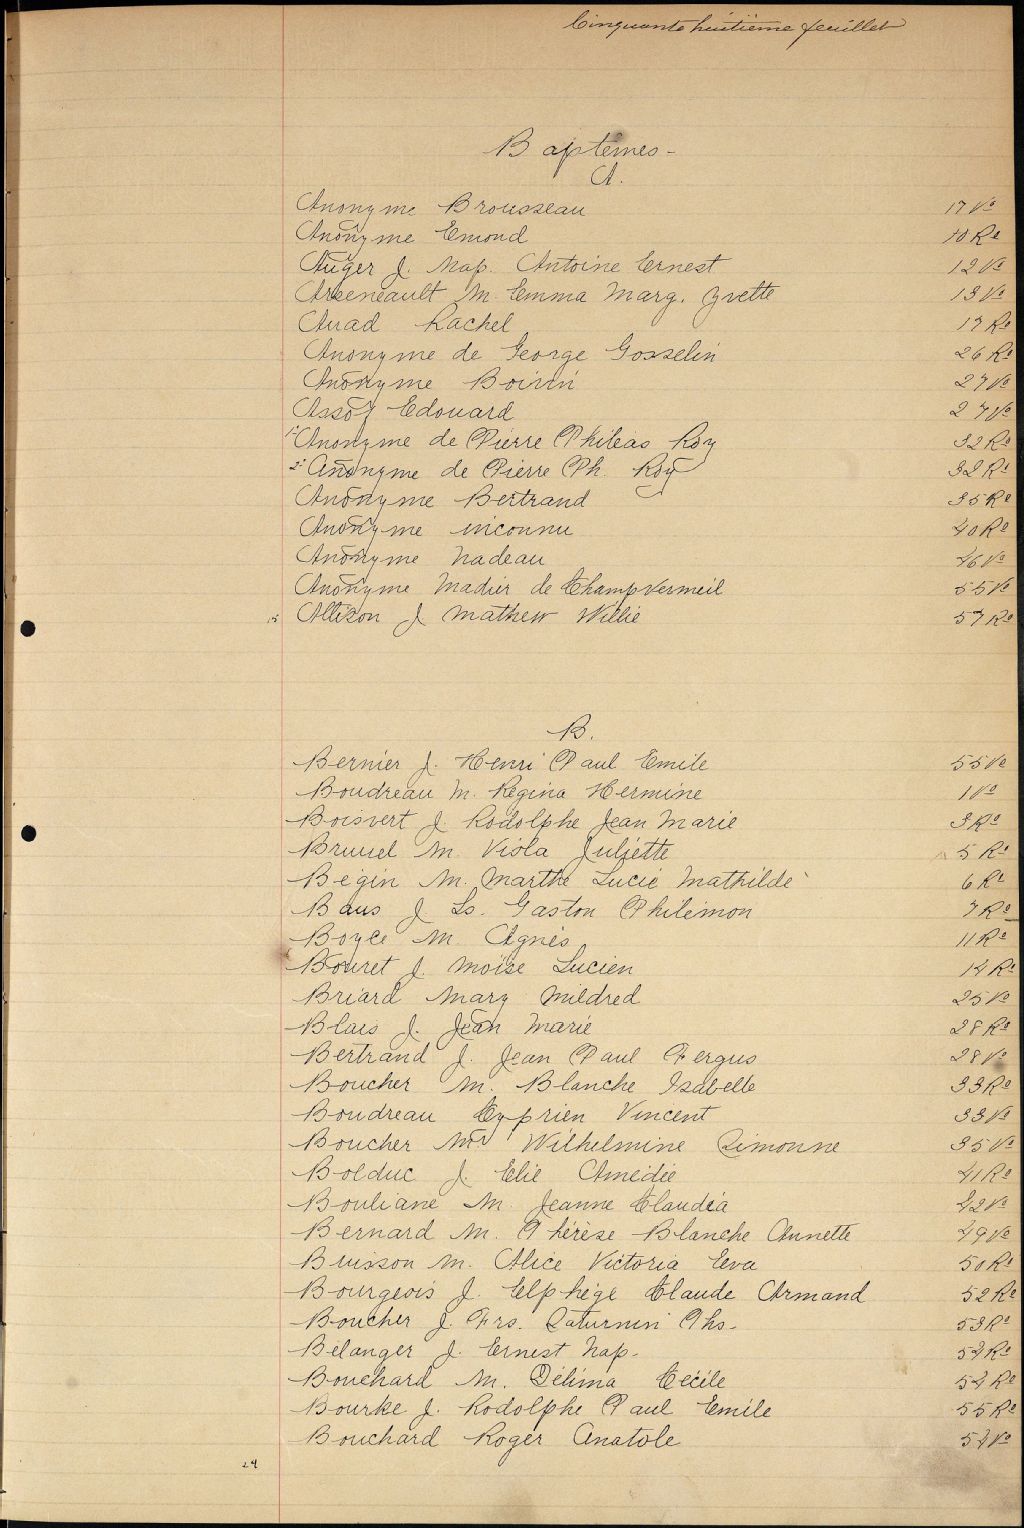 Cinquante huitième feuillet
Baptêmes -
A.
Anonyme Brousseau 17 Vo
Anonyme Emond 10 Ro
Auger J. Nap. Antoine Ernest 12 Vo
Arseneault M. Emma Marg. Yvette 13 Vo
Auad Rachel 17 Ro
Anonyme de George Gosselin 26 Ro
Anonyme Boivin 27 Vo
Assoy Edouard 27 Vo
1° Anonyme de Pierre Phileas Roy 32 Ro
2° Anonyme de Pierre Ph. Roy 32 Ro
Anonyme Bertrand 35 Ro
Anonyme inconnu 40 Ro
Anonyme Nadeau 46 Vo
Anonyme Madier de Champvermeil 55 Vo
15 Allison J Mathew Willie 57 Ro
B.
Bernier J. Henri Paul Emile 55 Vo
Boudreau M. Regina Hermine 1 Vo
Boisvert J. Rodolphe Jean Marie 3 Ro
Brunel M. Viola Juliette 5 Ro
Bégin M. Marthe Lucie Mathilde 6 Ro
Baus J Ls. Gaston Philémon 7 Ro
Boyce M. Agnès 11 Ro
Bouret J. Moïse Lucien 14 Ro
Briard Mary Mildred 25 Vo
Blais J. Jean Marie 28 Ro
Bertrand J. Jean Paul Fergus 28 Vo
Boucher M. Blanche Isabelle 33 Ro
Boudreau Cyprien Vincent 33 Vo
Boucher Wilhelmine Simonne 35 Vo
Bolduc J. Elie Amédée 41 Ro
Bouliane M. Jeanne Claudia 42 Vo
Bernard M. Thérèse Blanche Annette 49 Vo
Buisson M. Alice Victoria Eva 50 Ro
Bourgeois J. Elphége Claude Armand 52 Ro
Boucher J. Frs. Saturnin Ths. 53 Ro
Bélanger J. Ernest Nap. 54 Ro
Bouchard M. Délima Cécile 54 Ro
Bourke J. Rodolphe Paul Emile 55 Ro
Bouchard Roger Anatole 54 Vo
24